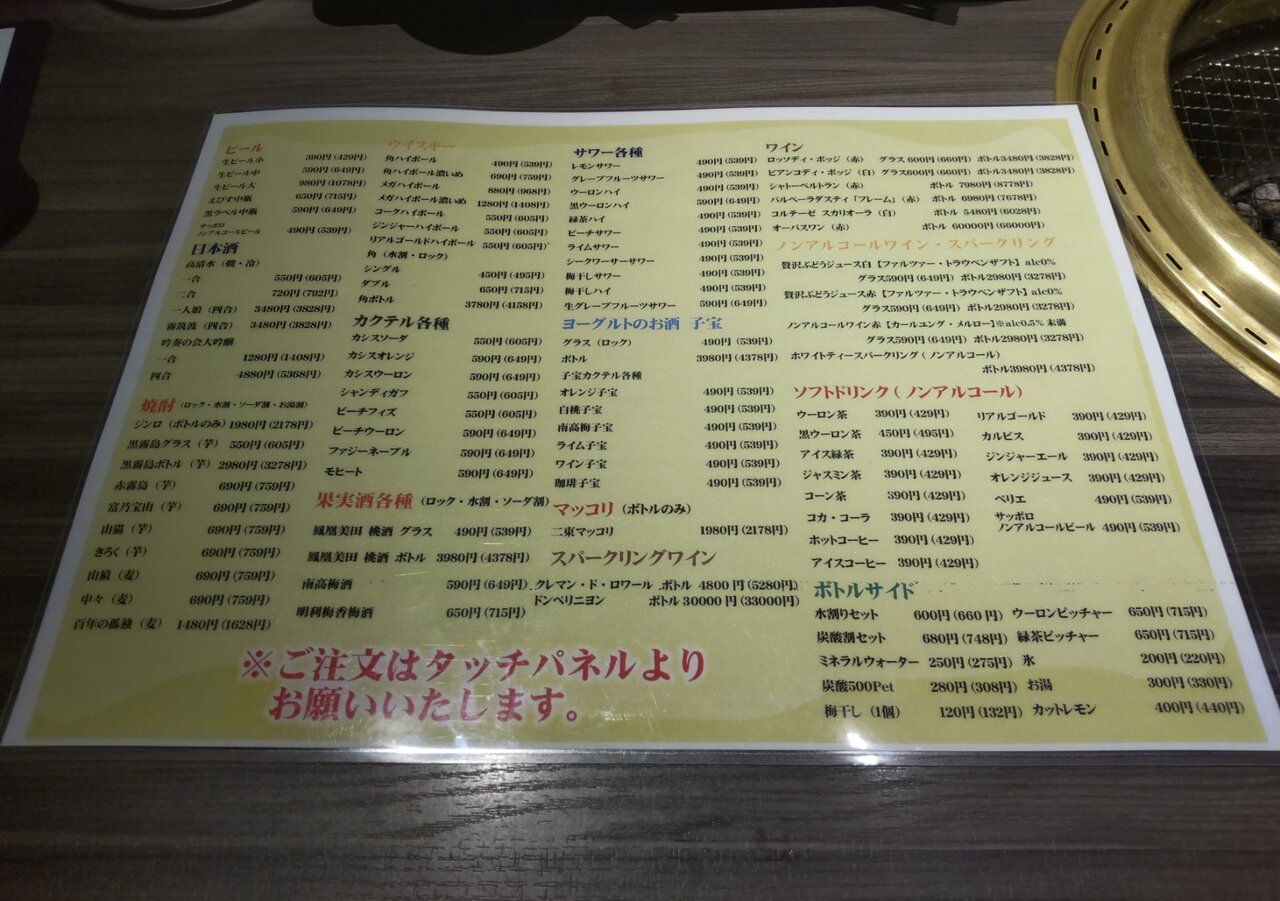 ビール
生ビール小 390円(429円)
生ビール中 590円(649円)
生ビール大 980円(1078円)
えびす中瓶 650円(715円)
黒ラベル中瓶 590円(649円)
サッポロ
ノンアルコールビール 490円(539円)
日本酒
高清水(燗・冷)
一合 550円(605円)
二合 720円(792円)
一人娘(四合) 3480円(3828円)
霧筑波(四合) 3480円(3828円)
吟奏の会大吟醸
一合 1280円(1408円)
四合 4880円(5368円)
焼酎(ロック・水割・ソーダ割・お湯割)
ジンロ(ボトルのみ) 1980円(2178円)
黒霧島グラス(芋) 550円(605円)
黒霧島ボトル(芋) 2980円(3278円)
赤霧島(芋) 690円(759円)
富乃宝山(芋) 690円(759円)
山猫(芋) 690円(759円)
きろく(芋) 690円(759円)
山猿(麦) 690円(759円)
中々(麦) 690円(759円)
百年の孤独(麦) 1480円(1628円)
ウイスキー
角ハイボール 490円(539円)
角ハイボール濃いめ 690円(759円)
メガハイボール 880円(968円)
メガハイボール濃いめ 1280円(1408円)
コークハイボール 550円(605円)
ジンジャーハイボール 550円(605円)
リアルゴールドハイボール 550円(605円)
角(水割・ロック)
シングル 450円(495円)
ダブル 650円(715円)
角ボトル 3780円(4158円)
カクテル各種
カシスソーダ 550円(605円)
カシスオレンジ 590円(649円)
カシスウーロン 590円(649円)
シャンディガフ 550円(605円)
ピーチフィズ 550円(605円)
ピーチウーロン 590円(649円)
ファジーネーブル 590円(649円)
モヒート 590円(649円)
果実酒各種(ロック・水割・ソーダ割)
鳳凰美田 桃酒 グラス 490円(539円)
鳳凰美田 桃酒 ボトル 3980円(4378円)
南高梅酒 590円(649円)
明利梅香梅酒 650円(715円)
サワー各種
レモンサワー 490円(539円)
グレープフルーツサワー 490円(539円)
ウーロンハイ 490円(539円)
黒ウーロンハイ 590円(649円)
緑茶ハイ 490円(539円)
ピーチサワー 490円(539円)
ライムサワー 490円(539円)
シークワーサーサワー 490円(539円)
梅干しサワー 490円(539円)
梅干しハイ 490円(539円)
生グレープフルーツサワー 590円(649円)
ヨーグルトのお酒 子宝
グラス(ロック) 490円(539円)
ボトル 3980円(4378円)
子宝カクテル各種
オレンジ子宝 490円(539円)
白桃子宝 490円(539円)
南高梅子宝 490円(539円)
ライム子宝 490円(539円)
ワイン子宝 490円(539円)
珈琲子宝 490円(539円)
マッコリ(ボトルのみ)
二東マッコリ 1980円(2178円)
スパークリングワイン
クレマン・ド・ロワール ボトル 4800円(5280円)
ドンペリニヨン ボトル 30000円(33000円)
ワイン
ロッソディ・ポッジ(赤) グラス 600円(660円) ボトル3480円(3828円)
ビアンコディ・ポッジ(白) グラス600円(660円) ボトル3480円(3828円)
シャトーベルトラン(赤) ボトル 7980円(8778円)
バルベーラダスティ「フレーム」(赤) ボトル 6980円(7678円)
コルテーゼ スカリオーラ(白) ボトル 5480円(6028円)
オーパスワン(赤) ボトル 60000円(66000円)
ノンアルコールワイン・スパークリング
贅沢ぶどうジュース白【ファルツァー・トラウベンザフト】alc0%
グラス590円(649円) ボトル2980円(3278円)
贅沢ぶどうジュース赤【ファルツァー・トラウベンザフト】alc0%
グラス590円(649円) ボトル2980円(3278円)
ノンアルコールワイン赤【カールユング・メルロー】※alc0.5%未満
グラス590円(649円) ボトル2980円(3278円)
ホワイトティースパークリング(ノンアルコール)
ボトル3980円(4378円)
ソフトドリンク(ノンアルコール)
ウーロン茶 390円(429円) リアルゴールド 390円(429円)
黒ウーロン茶 450円(495円) カルピス 390円(429円)
アイス緑茶 390円(429円) ジンジャーエール 390円(429円)
ジャスミン茶 390円(429円) オレンジジュース 390円(429円)
コーン茶 390円(429円) ペリエ 490円(539円)
コカ・コーラ 390円(429円) サッポロ
ノンアルコールビール 490円(539円)
ホットコーヒー 390円(429円)
アイスコーヒー 390円(429円)
ボトルサイド
水割りセット 600円(660円) ウーロンピッチャー 650円(715円)
炭酸割セット 680円(748円) 緑茶ピッチャー 650円(715円)
ミネラルウォーター 250円(275円) 氷 200円(220円)
炭酸500Pet 280円(308円) お湯 300円(330円)
梅干し(1個) 120円(132円) カットレモン 400円(440円)
※ご注文はタッチパネルより
お願いいたします。